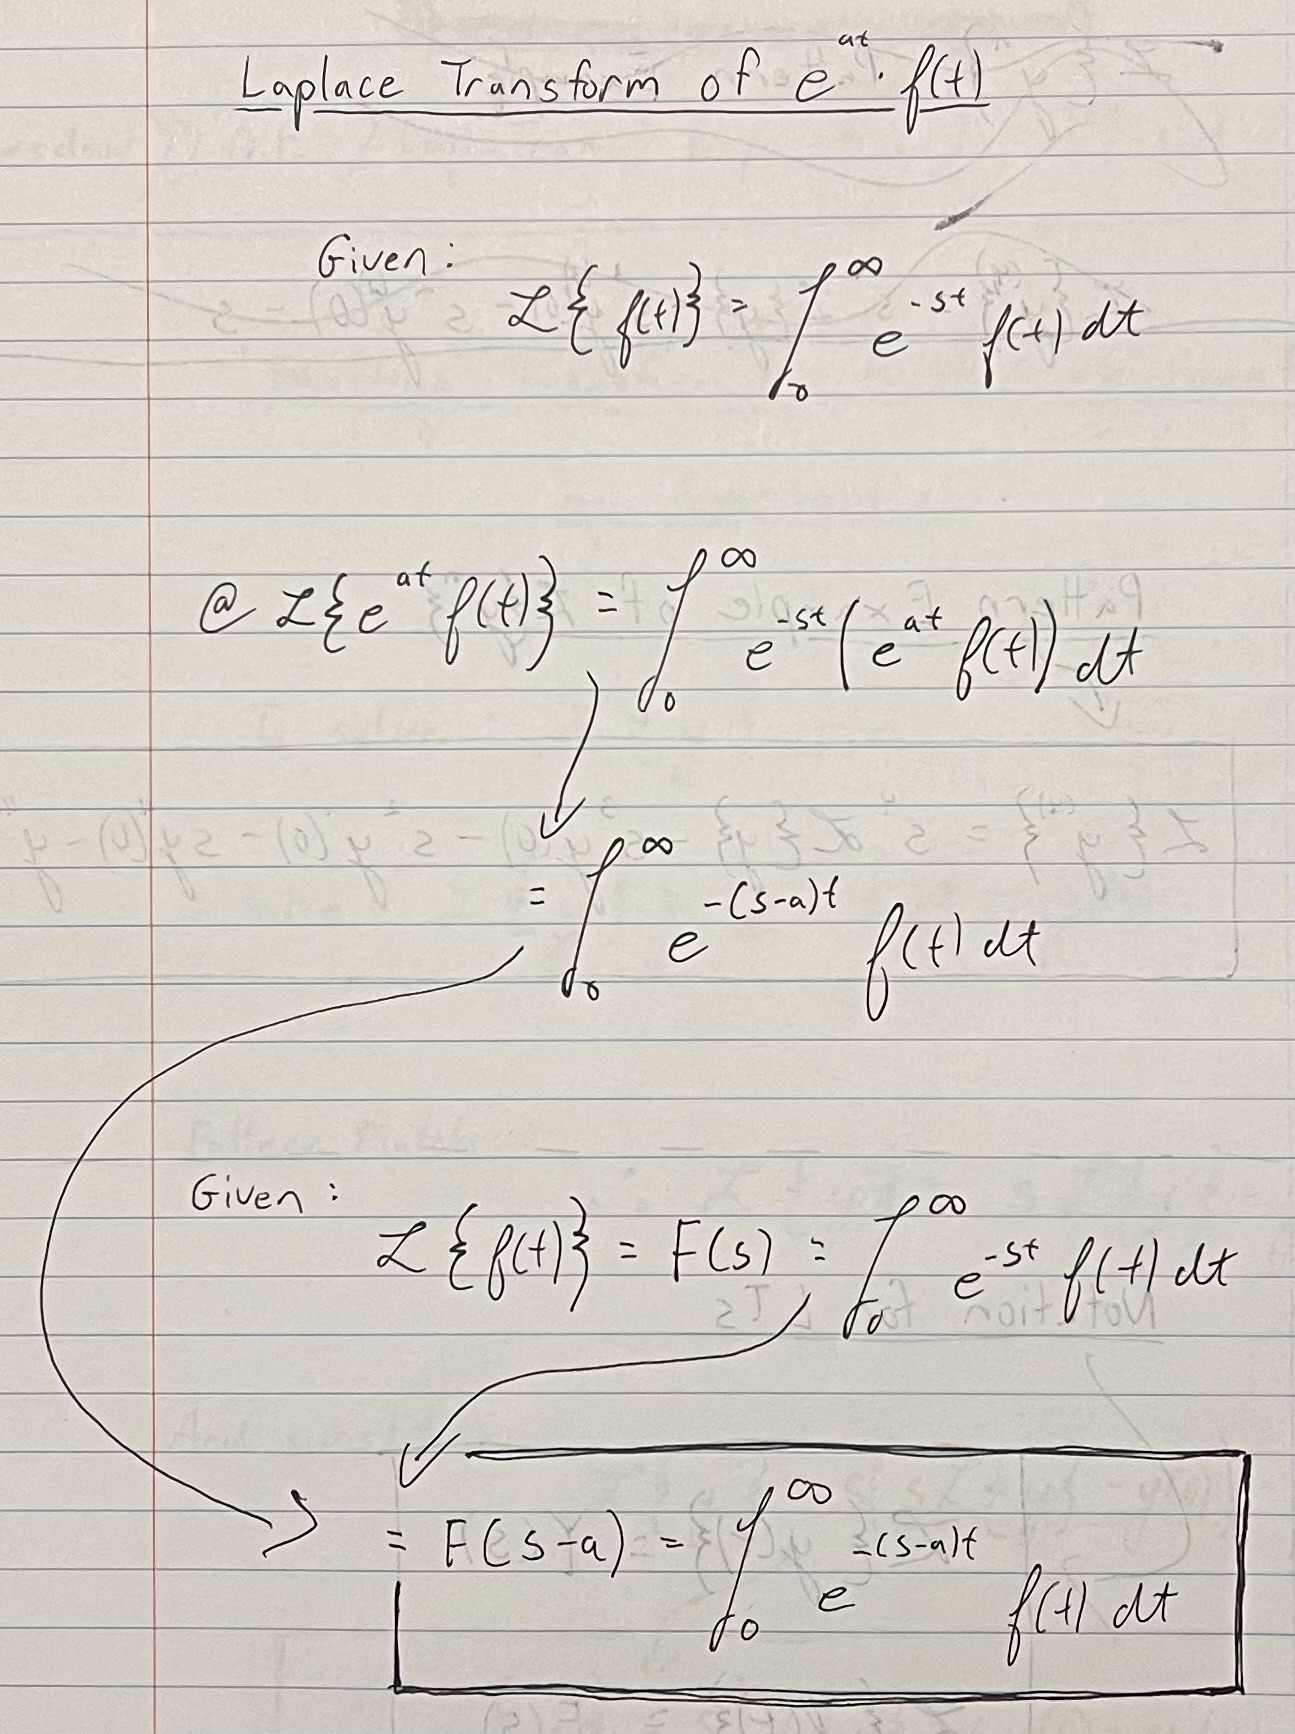 Laplace Transform of e^{at} · f(t)
Given:
ℒ{f(t)} = ∫_0^∞ e^{-st} f(t) dt
@ ℒ{e^{at} f(t)} = ∫_0^∞ e^{-st} (e^{at} f(t)) dt
= ∫_0^∞ e^{-(s-a)t} f(t) dt
Given:
ℒ{f(t)} = F(s) = ∫_0^∞ e^{-st} f(t) dt
= F(s-a) = ∫_0^∞ e^{-(s-a)t} f(t) dt